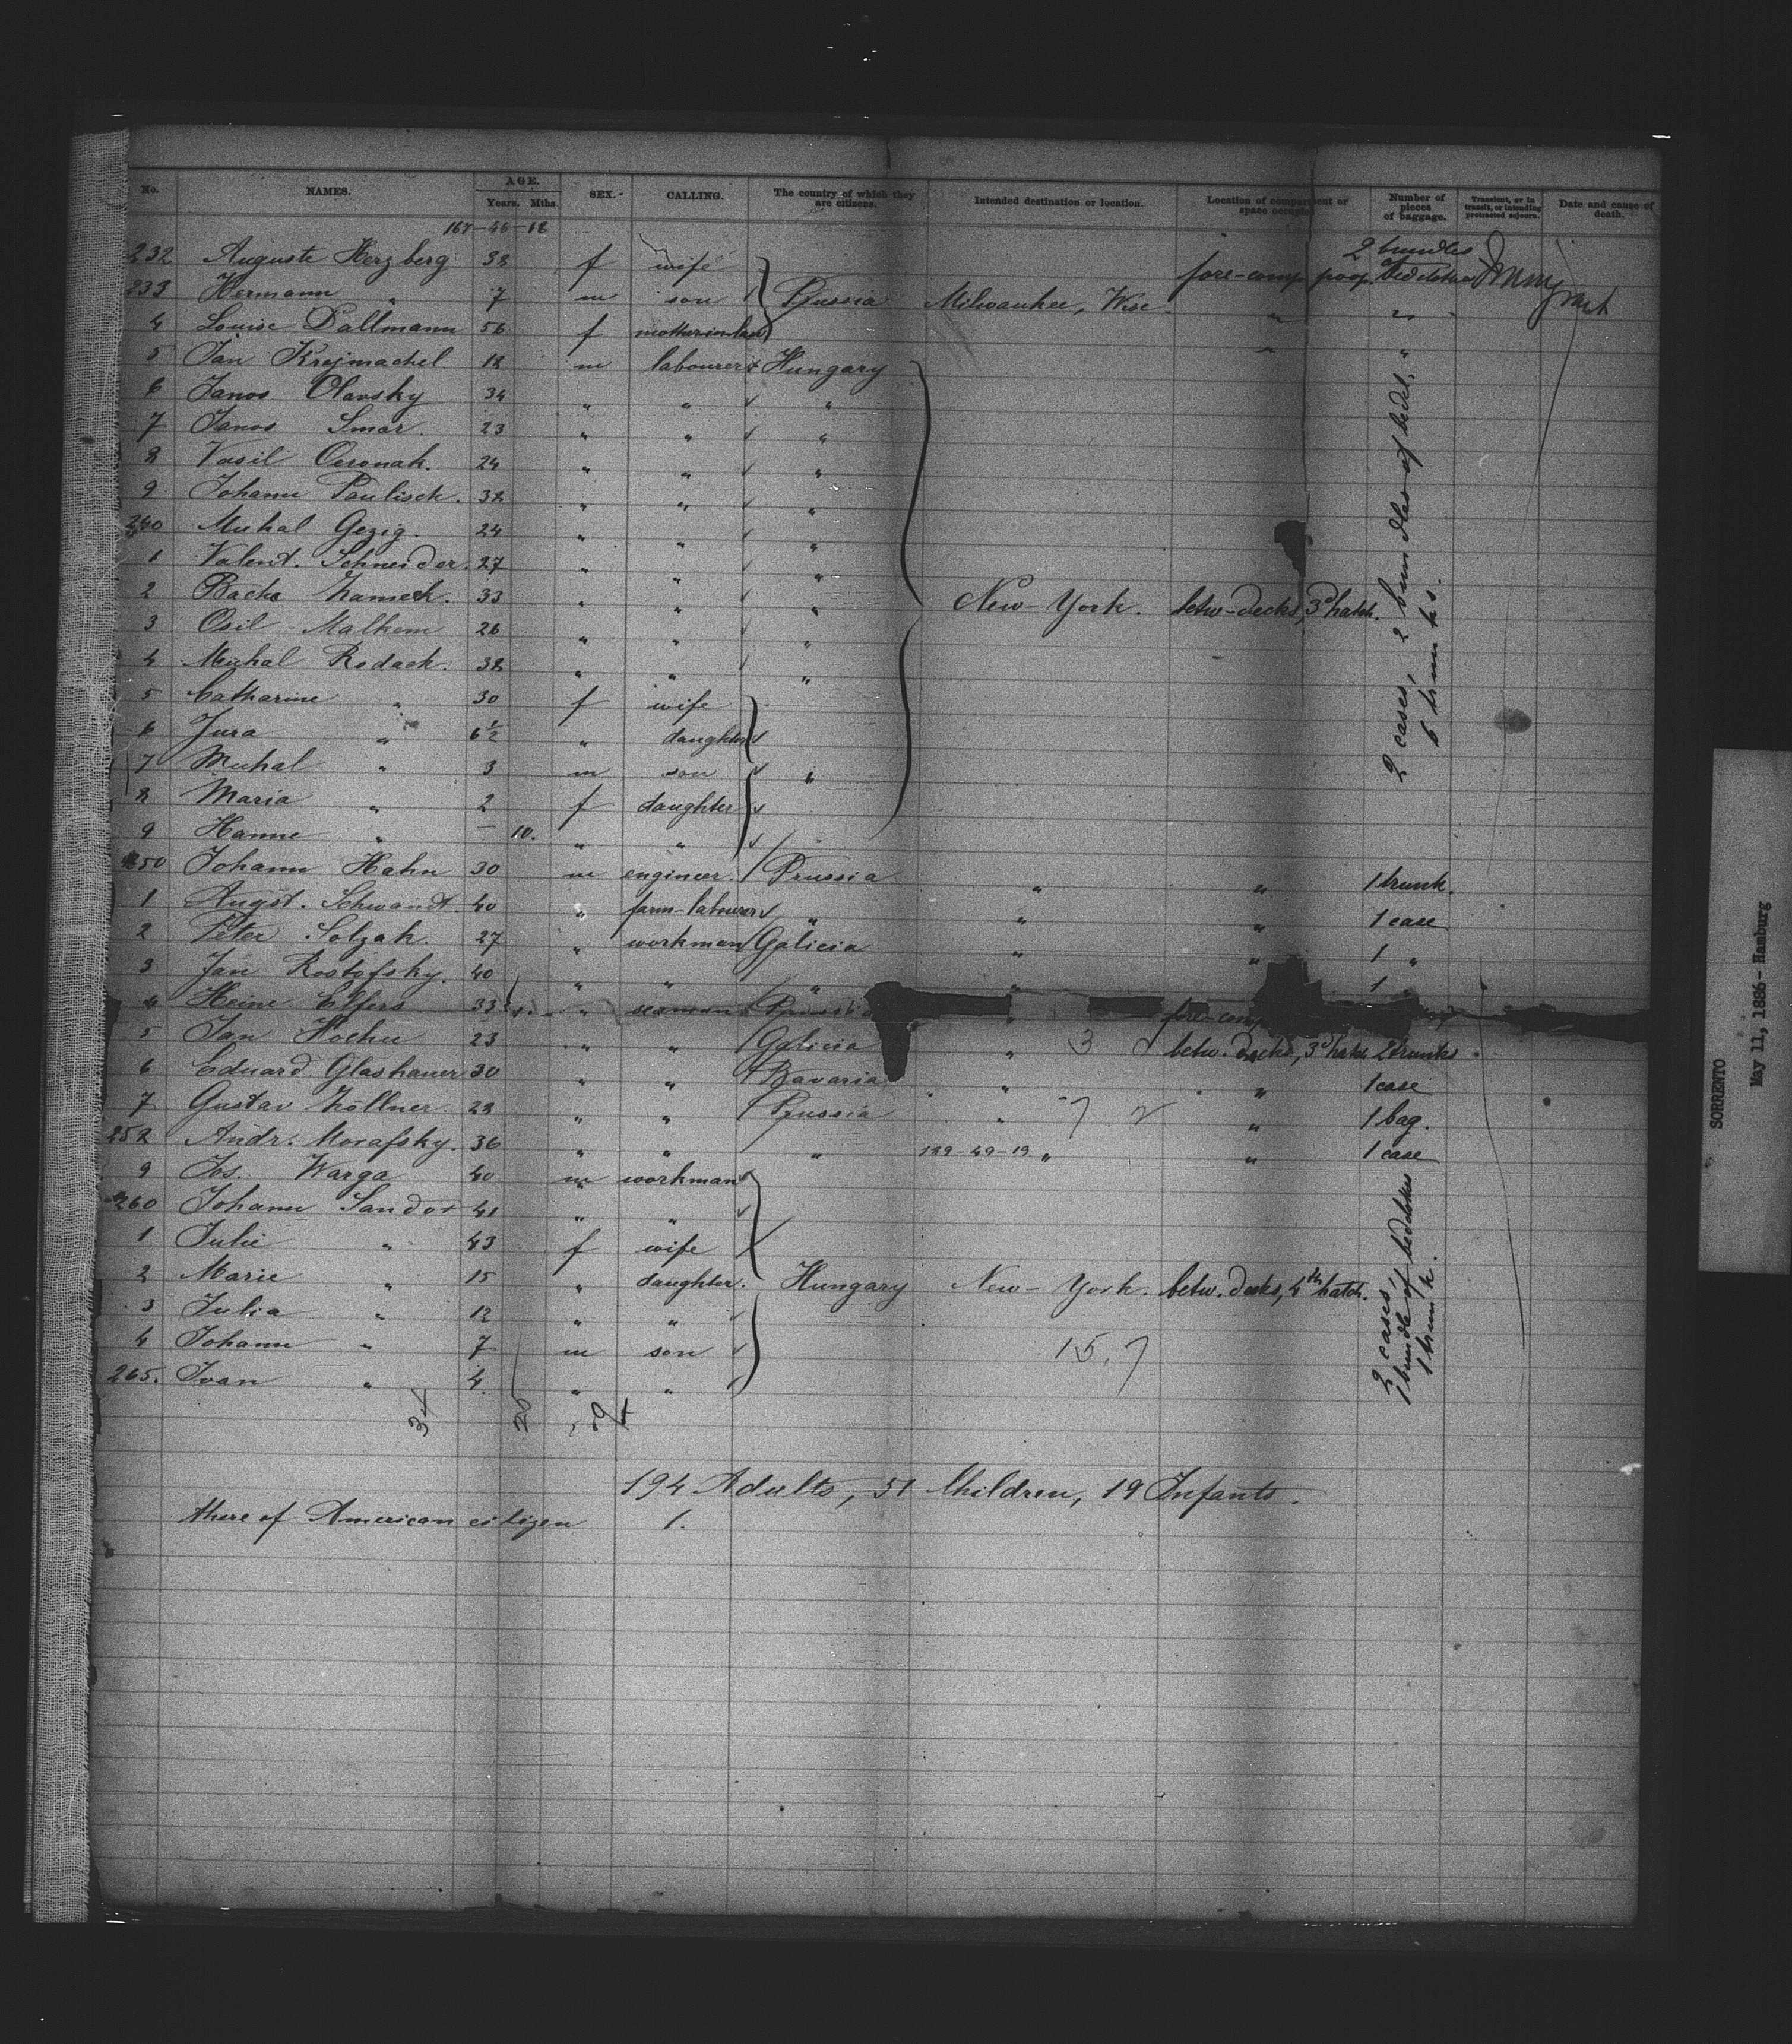 No. NAMES. AGE. Years. Mths. SEX. CALLING. The country of which they are citizens. Intended destination or location. Location of compartment or space occupied Number of pieces of baggage. Transient, or in transit, or intending protracted sojourn. Date and cause of death.
167-46-18
232 Auguste Herzberg 38 f wife fore-comp. poop. 2 bundles of bedclothes
233 Hermann " 7 m son Prussia Milwaukee, Wisc. " "
4 Louise Dallmann 56 f mother in law " "
5 Jan Krejmachel 18 m labourer Hungary
6 Janos Olavsky 34 " " "
7 Janos Smar. 23 " " "
8 Vasil Ceronak. 24 " " "
9 Johann Paulisch. 38 " " "
240 Michal Gezig. 24 " " "
1 Valent. Schneider. 27 " " "
2 Backa Hameck. 33 " " " New-York. betw-decks, 3d hatch. 2 cases, 2 bundles of bedcl. 6 trunks.
3 Osil Malkem 26 " " "
4 Michal Redack. 38 " " "
5 Catharine " 30 f wife
6 Jura " 6½ " daughter
7 Michal " 3 m son "
8 Maria " 2 f daughter
9 Hanne " — 10. " "
250 Johann Hahn 30 m engineer. Prussia " " 1 trunk.
1 Augst. Schwandt. 40 " farm-labourer " " " 1 case
2 Peter Solzak. 27 " workman Galicia " " 1 "
3 Jan Rostofsky. 40 " " " " 1 "
4 Heine Elfers 33 " seaman Prussia " fore-comp
5 Jan Hoehn 23 " " Galicia " 3 betw. decks, 3d hatch 2 trunks
6 Eduard Glashauer 30 " " Bavaria " " 1 case
7 Gustav Zöllner. 28 " " Prussia " 7 " 1 bag.
258 Andr. Morafsky. 36 " " " 189-49-19. " " 1 case
9 Jos. Warga 40 m workman
260 Johann Sandor 41 " "
1 Julie " 43 f wife
2 Marie " 15 " daughter. Hungary New-York. betw. decks, 4th hatch. 2 cases, 1 bundle of bedclothes 1 trunk.
3 Julia " 12 " "
4 Johann " 7 m son 15. 7
265. Ivan " 4. " "
34
194 Adults, 51 Children, 19 Infants.
there of American citizen 1.
SORRENTO
May 11, 1886 - Hamburg